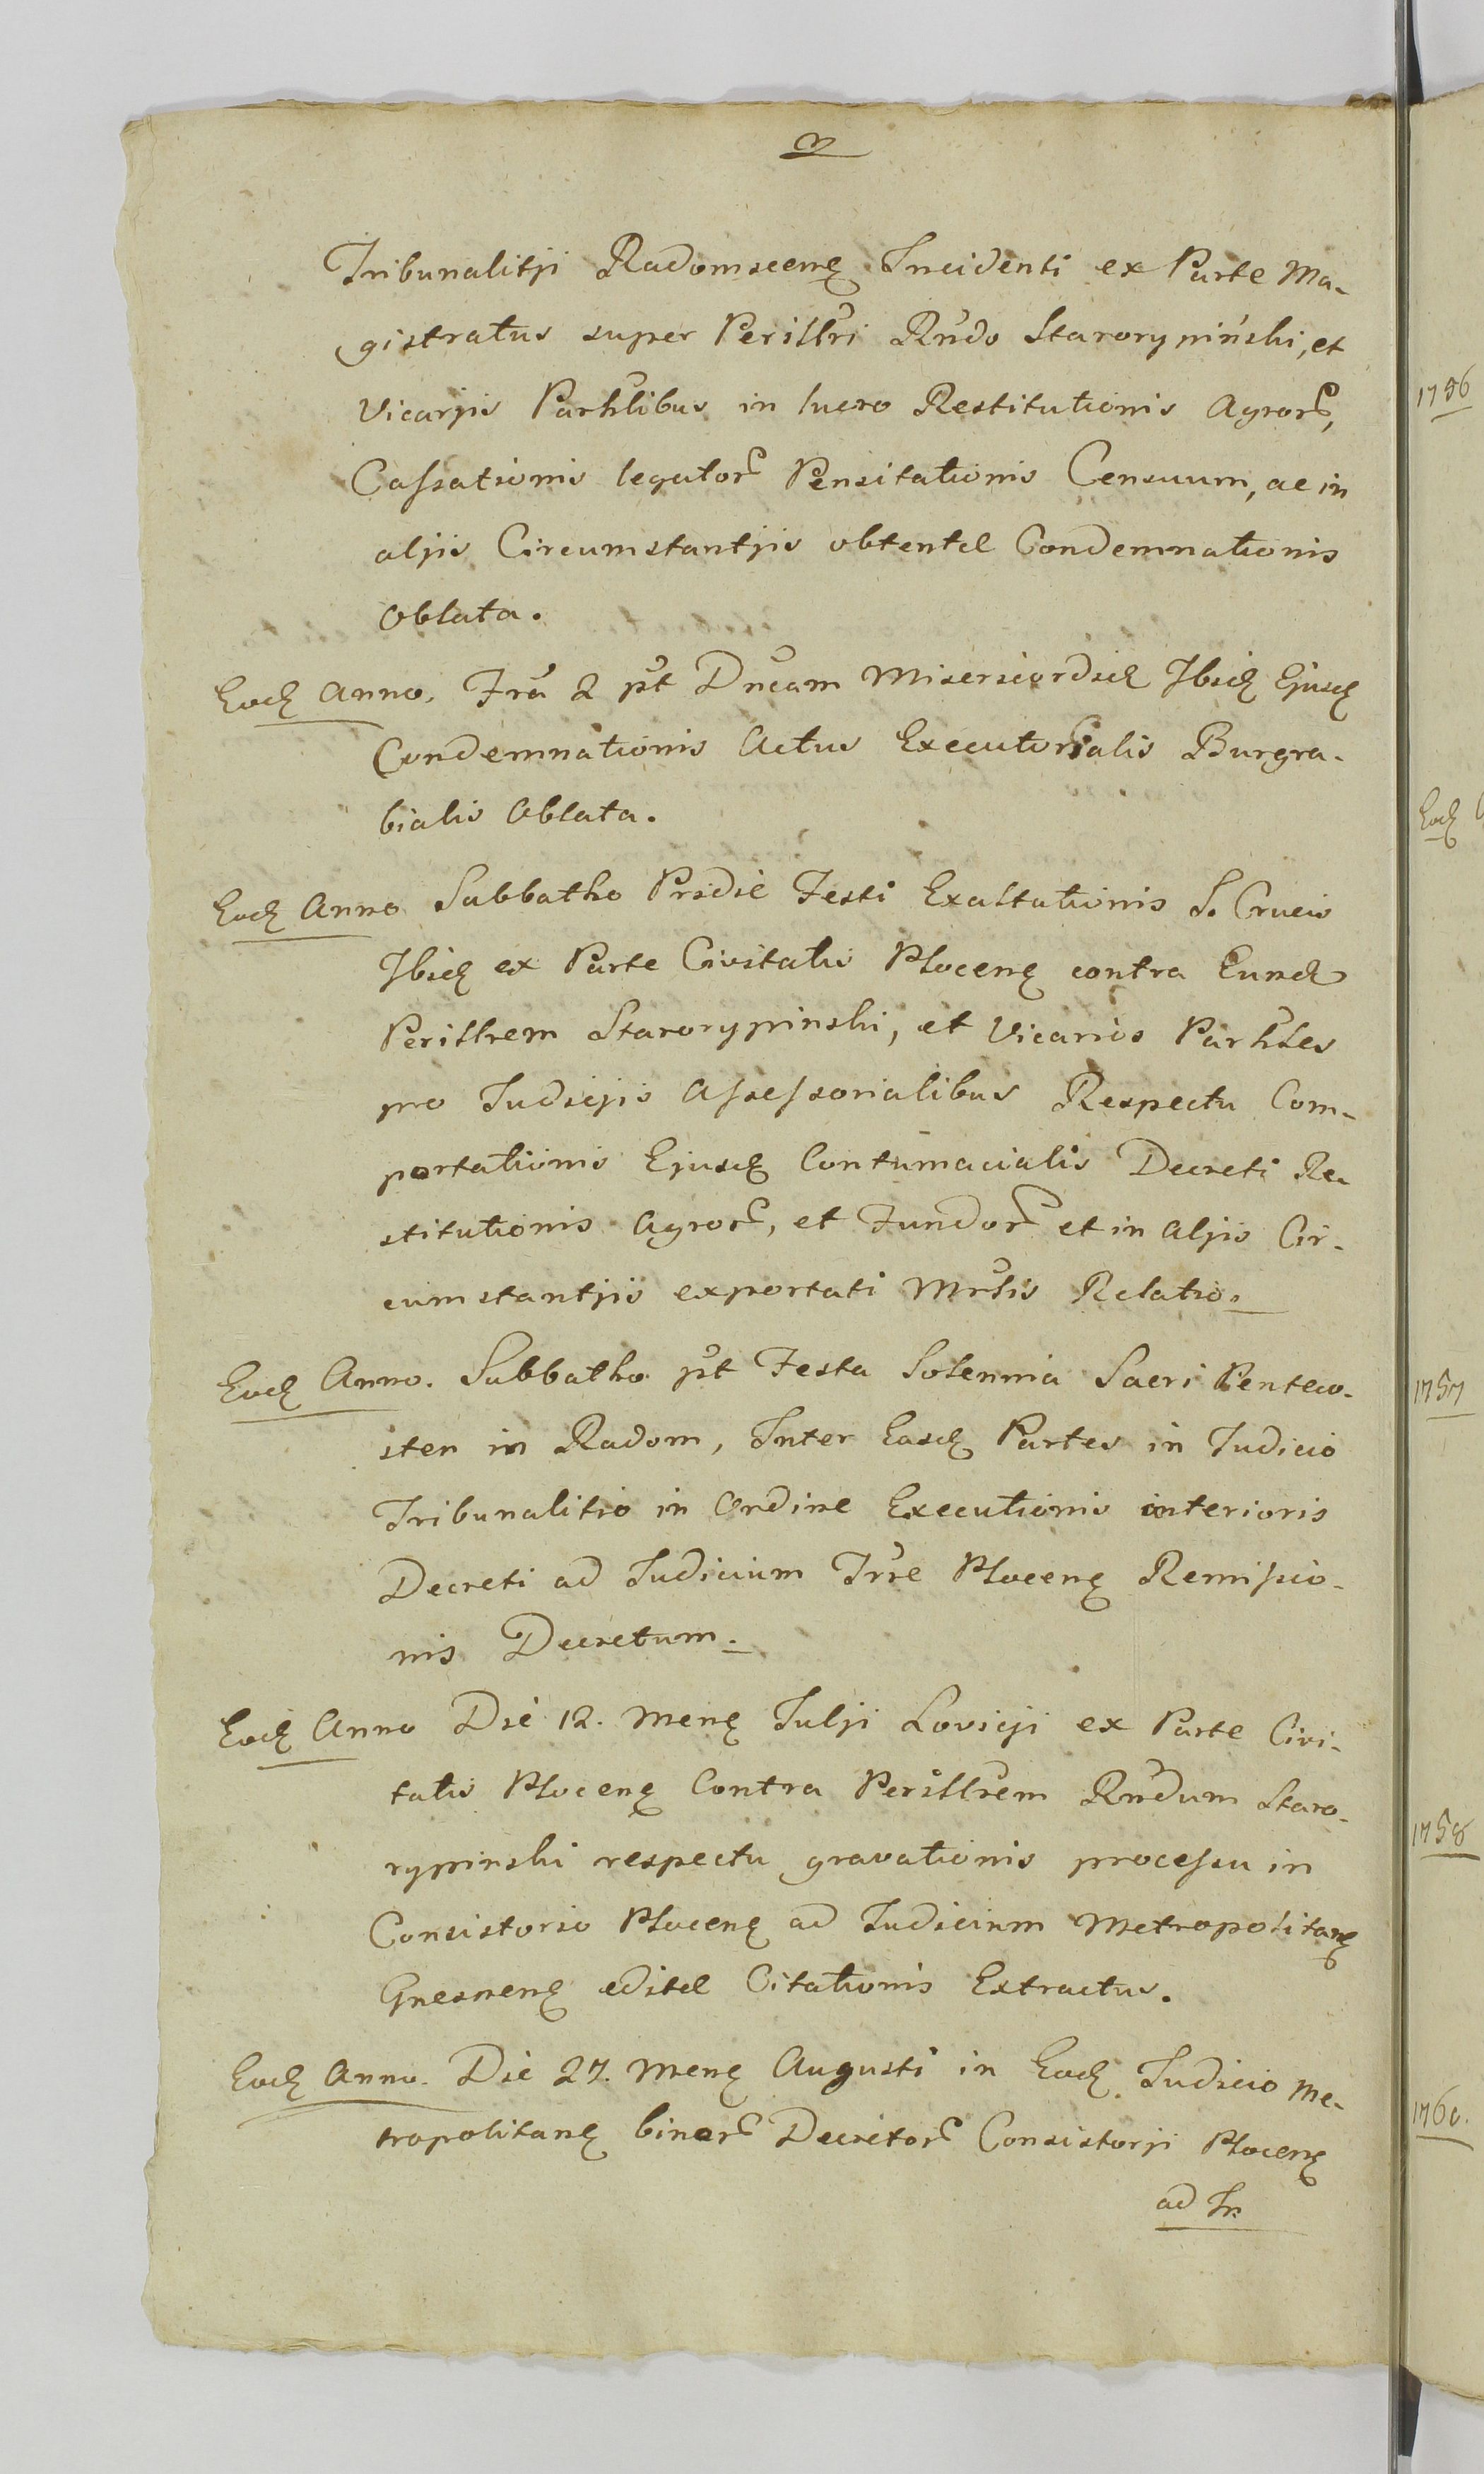 3
Tribunalitji Radomscenę Incidenti ex Parte Ma-
gistratus super Perillri Rndo Starorypiński, et
Vicarjis Parhlibus in lucro Restitutionis Agror,
Cassationis legator Pensitationis Censuum, ac in
aljis Circumstantjis obtentæ Condemnationis
Oblata.
Eodę Anno. Fra 2 pt Dncam Misericordiæ Ibidę Ejusdę
Condemnationis Actus Executorialis Burgra-
bialis Oblata.
Eodę Anno Sabbatho Pridie Festi Exaltationis S. Crucis
Ibidę ex Parte Civitatis Plocenę contra Eund
Perillrem Starorypinski, et Vicarios Parhles
pro Judicjis Assessorialibus Respectu Com-
portationis Ejusdę Contumacialis Decreti Re-
stitutionis Agror, et Fundor et in Aljis Cir-
cumstantjis exportati Mrlis Relatio.
Eodę Anno. Sabbatho pt Festa Solennia Sacri Penteco-
sten in Radom, Inter Easdę Partes in Judicio
Tribunalitio in Ordine Executionis interioris
Decreti ad Judicium Trre Plocenę Remissio-
nis Decretum.
Eodę Anno Die 12. Menę Julji Lovicji ex Parte Civi-
tatis Plocenę Contra Perillrem Rndum Staro-
rypinski respectu gravationis processu in
Consistorio Plocenę ad Judicium Metropolitanę
Gnesnenę editæ Citationis Extractus.
Eodę Anno. Die 27. Menę Augusti in Eodę Judicio Me-
tropolitanę binor Decretor Consistorji Plocenę
ad In
1756
Eodę
1757
1758
1760.